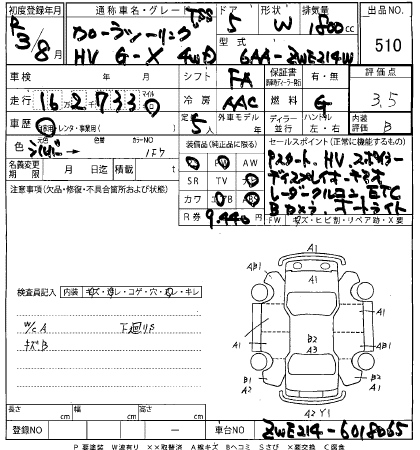 初度登録年月 通称車名・グレード ドア 形状 排気量 出品NO.
R3/8月 カローラツーリング 5 W 1800cc 510
HV G-X 4WD 型式 6AA-ZWE214W
車検 シフト FA 保証書 有・無 評価点
走行 162733 マイル km 冷房 AAC 燃料 G 3.5
車歴 自家用・レンタ・事業用 定員 5人 外車モデル ディーラー 並行 ハンドル 左・右 内装評価 B
色 元色 シルバー カラーNO
名義変更期限 月 日 積載 t
装備品(純正品に限る) セールスポイント(正常に機能するもの)
SR TV
カワ
R券 9,440 円
Pスタート、HV、スポイラー
ディスプレイオーディオ
レーダークルコン、ETC
Bカメラ、オートライト
FW キズ・ヒビ割・リペア跡・X要
注意事項(欠品・修復・不具合箇所および状態)
検査員記入 内装 キズ・汚レ・コゲ・穴・キレ
W/C A 下廻りS
キズB
A1
AB1 A1
A1 A1
B2
A3
B2
AB1 A1
A2 Y1
長さ cm 幅 cm 高さ cm
登録NO ー 車台NO ZWE214-6018065
P 要塗装 W波有り ××取替済 A線キズ Bヘコミ Sさび ×要交換 C腐食